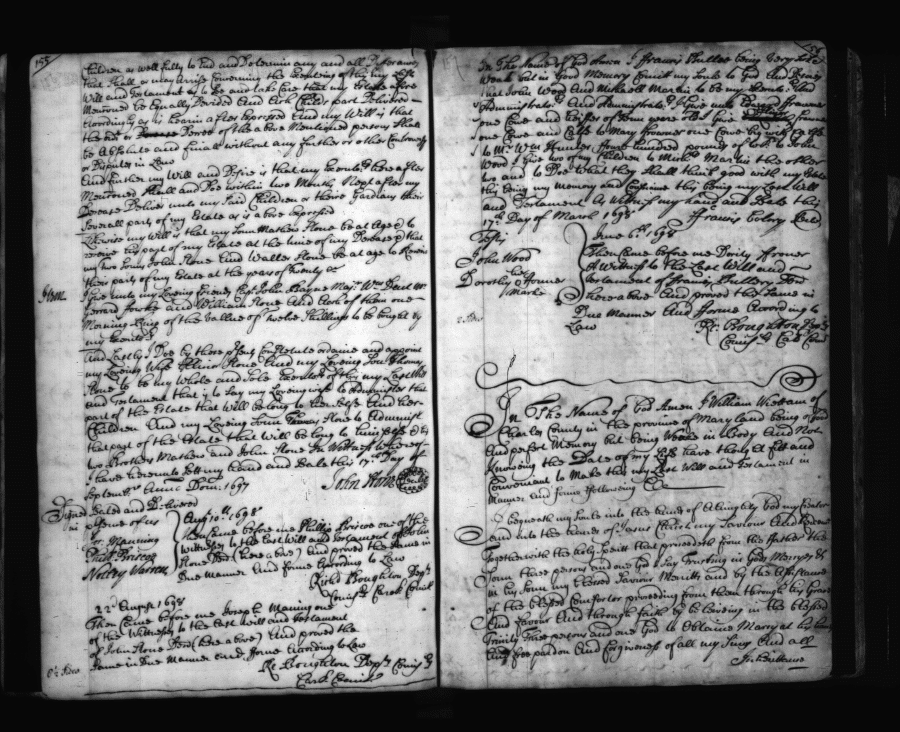 155
Children as well fully to End and Determin any and all Differances
that Shall or may arrise Concerning the Executeing of this my Last
Will and Testament as to See and take Care that my Estate afore
Mentioned be Equally Devided and Each Childs part Delivered
Accordingly as is herein after Expressed And my Will is that
the or Decree of the above Mentioned persons Shall
be Absolute and finall without any further or other Controversy
or Disputes in Law
And further my Will and Desire is that my Executrs hereafter
Mentioned Shall and Doe within two Months Next after my
Decease Deliver unto my Said Children or theire Gardians their
Severall parts of my Estate as is above Expressed
Likewise my Will is that my Sonn Mathew Stone be at Age to
receive his part of my Estate at the time of my Decease that
my two Sonns John Stone And Walter Stone be at age to Receive
their parts of my Estate at the years of Twenty
Item I give unto my Loveing Friends Capt John Bayne Majr Wm Dent Mr
Gerrard fowke and William Stone And Each of them one
Morning Ring of the vallue of Twelve Shillings to be bought by
my Executrs
And Lastly I Doe by these presents Constitute ordaine and appoint
my Loveing Wife Elinor Stone And my Loveing Son Thomas
Stone to be my whole and Sole Executors of this my Last Will
and Testament that is to Say my Loveing wife to Administer that
part of the Estate that Will belong to her Selfe And her
Children And my Loveing Sonn Thomas Stone to Administer
that part of the Estate that Will be long to himselfe & his
two Brothers Mathew and John Stone In Wittness whereof
I have hereunto Sett my hand and Seale this 17th Day of
September Anno Dom: 1697
John Stone Seale
Signed Sealed and Delivered
in presence of us
Jos: Manning
Phill Briscoe
Notley Warren
Augt 10th 1698
Then Came before me Phillip Briscoe one of the
Wittnesses to the Last Will and Testament of John
Stone Decd (here above) and proved the Same in
Due Manner and forme According to Law
Richd Boughton Depty
Comissy Carols County
22d August 1698
Then Came before me Joseph Maning one
of the Wittnesses to the Last Will and Testament
of John Stone Decd (here above) And proved the
Same in Due Manner and forme According to Law
Ri: Boughton Depty Comissy
Carls County
In The Name of God Amen I ffrancis ffuller being Very Sick
Weak but in Good Memory Comitt my Soule to God And
that John Wood And Michaell Martin to be my
And Administrators I Give unto ffarmer
one Cowe and heifer of years old I Give
one Cowe and Calfe to Mary ffarmer one Cowe
to Mr Wm Hunter four hundred pounds of tobo to John
Wood I Give two of my Children to Michll Martin the other
two and to Doe What they Shall think good with my Estate
this being my memory and this being my Last Will
and Testament As Witness my hand and Seale this
17th Day of March 1698
Teste
John Wood
her
Dorothy ffarmer
marke
June 6th 1698
Then Came before me Dority ffarmer
A Wittness to the Last Will and
Testament of francis ffullery Decd
(here above) and proved the Same in
Due Manner And forme According to
Law
Ri: Boughton Depty
Comissy
In The Name of God Amen I William Wettam of
Charles County in the province of Maryland being of good
And perfect Memory but being Weeke in Body And Not
Knowing the Date of my Life have thought fitt and
Convenient to Make this my Last Will and Testament in
Manner and forme ffollowing
I bequeath my Soule into the hands of Almighty God my Creator
and into the hands of Jesus Christ my Saviour And Redeemer
Together with the holy Spiritt that proceedeth from the father the
Sonn three persons and one God I Say Trusting in Gods Mercyes &
in his Sonn my blessed Saviour Meritts and by the Assistance
of the blessed Comforter proceeding from them through his Grace
And favour And through faith by beleiveing in the blessed
Trinity Three persons and one God to obtaine Mercy at his hands
And free pardon And forgiveness of all my Sins And all